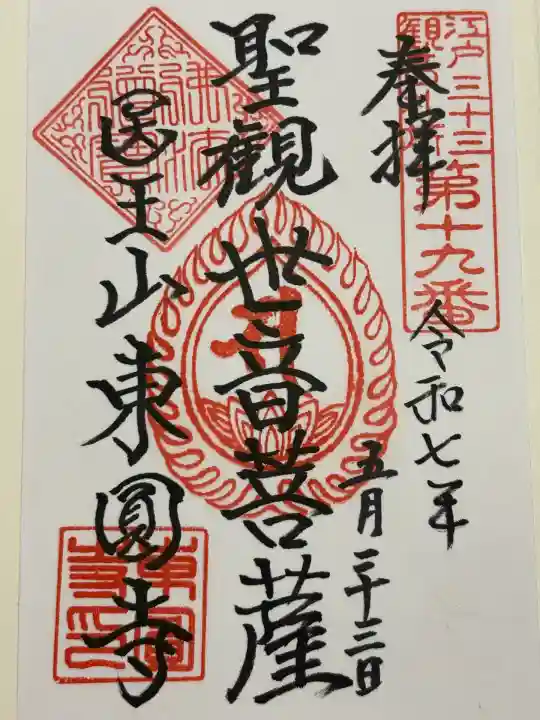 江戸三十三
観音札所
第十九番
奉拝
令和七年
五月二十三日
聖觀世音菩薩
医王山東圓寺